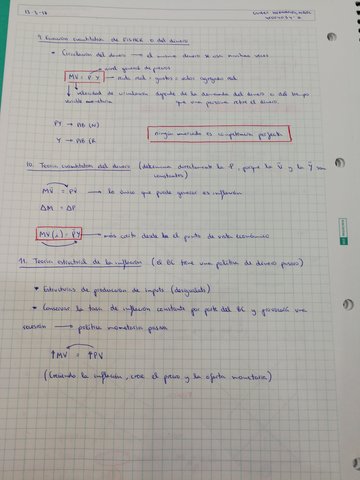 13-3-18
9. Ecuación cuantitativa de FISHER o del dinero
• Circulación del dinero → el mismo dinero se usa muchas veces
nivel general de precios
MV = P Y → renta real = gastos = valor agregado real
velocidad de circulación depende de la demanda del dinero o del tiempo
que una persona retiene el dinero
variable monetaria
PY → PIB (N)
Y → PIB (R
ningún mercado es competencia perfecta
10. Teoría cuantitativa del dinero (determina directamente la P, porque la V̄ y la Ȳ son
constantes)
MV̄ = PȲ → lo único que puede generar es inflación
ΔM = ΔP
MV(i) = PY → más corto desde el punto de vista económico
11. Teoría estructural de la inflación (el BC tiene una política de dinero pasivo)
• Estructuras de producción de impacto (desigualdad)
• Conservar la tasa de inflación constante por parte del BC y provocaría una
recesión → política monetaria pasiva
↑MV = ↑PV
(Creciendo la inflación, crece el precio y la oferta monetaria)